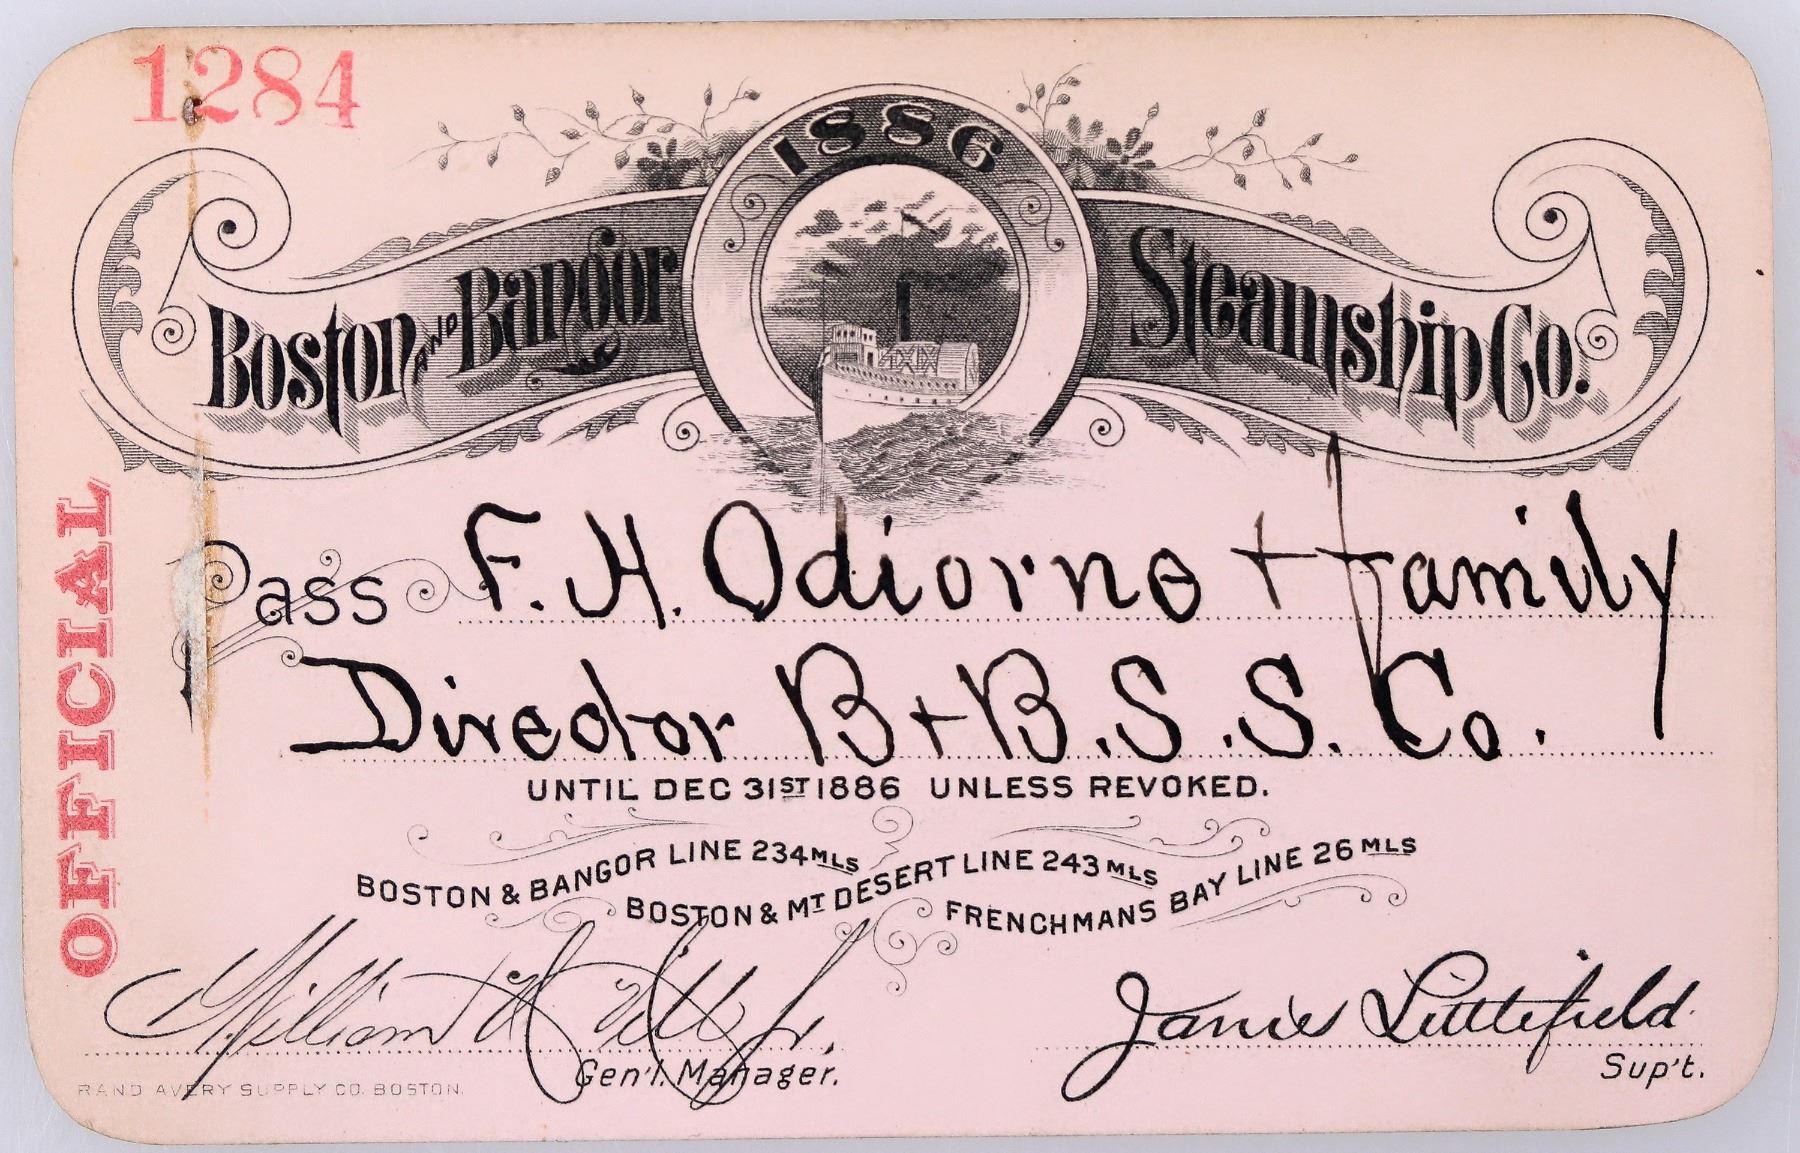 1284
1886
Boston AND Bangor Steamship Co.
OFFICIAL
Pass F. H. Odiorne + Family
Director B + B. S. S. Co.
UNTIL DEC 31ST 1886 UNLESS REVOKED.
BOSTON & BANGOR LINE 234 MLS
BOSTON & MT DESERT LINE 243 MLS
FRENCHMANS BAY LINE 26 MLS
William H Hill Jr.
Gen'l. Manager.
James Littlefield
Sup't.
RAND AVERY SUPPLY CO. BOSTON.